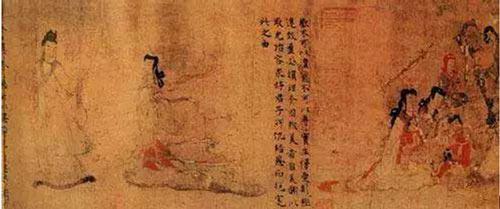 歡不可以黷寵不可以專專實生慢愛則極
遷致盈必損理有固然美者自美翩以
取尤冶容求好君子所讎結恩而絕寔
此之由